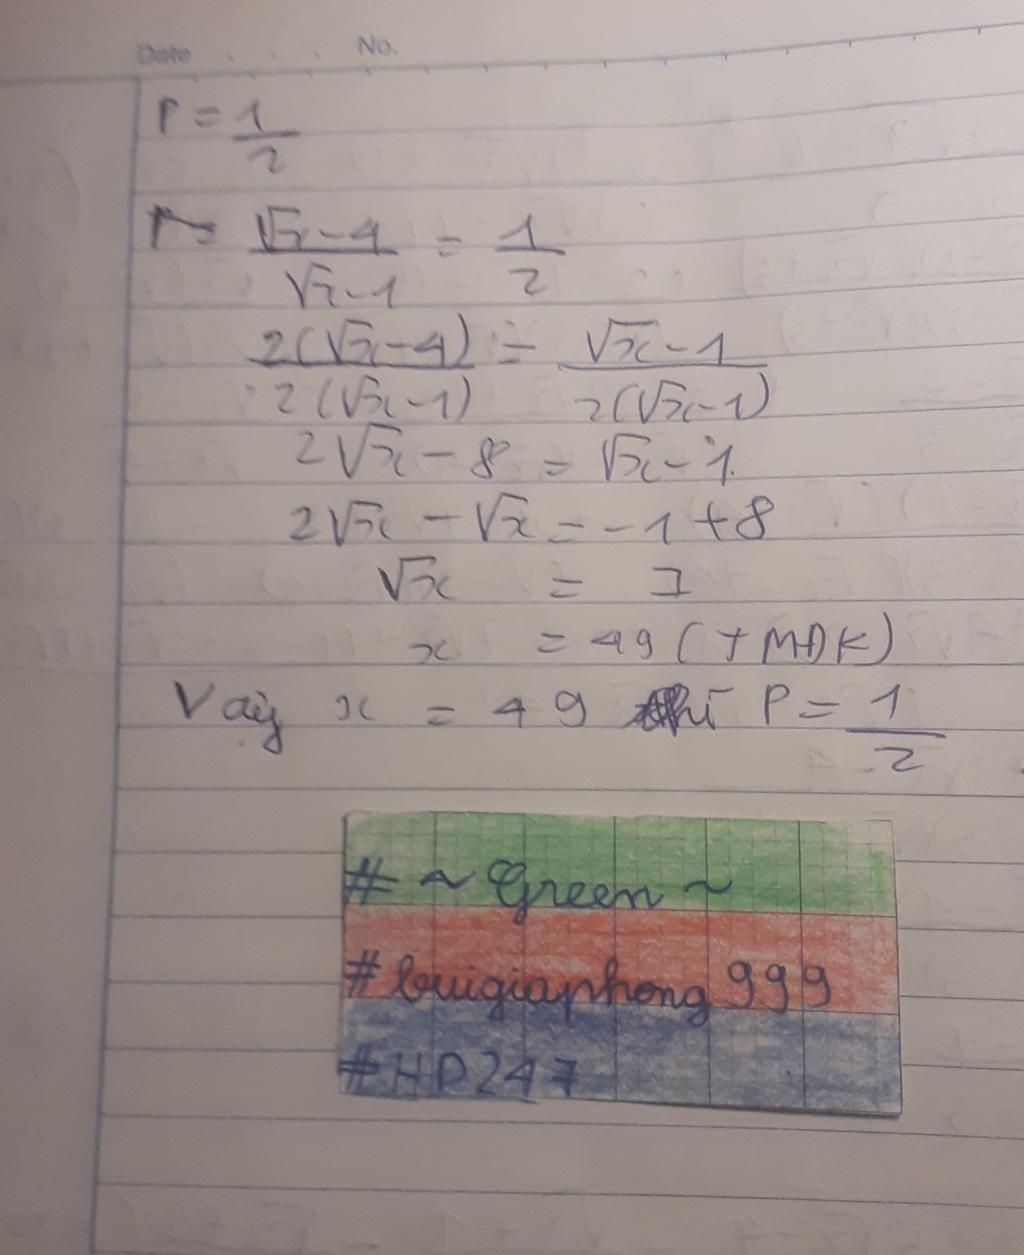 Date . . . . No.
P = 1/2
P = (√x - 4)/(√x - 1) = 1/2
2(√x - 4)/2(√x - 1) = (√x - 1)/2(√x - 1)
2√x - 8 = √x - 1
2√x - √x = -1 + 8
√x = 7
x = 49 (TMĐK)
Vậy x = 49 thì P = 1/2
# ~ Green ~
# buigiaphong 999
#HD247